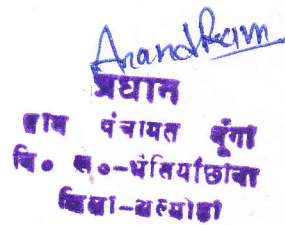 Anand Ram
प्रधान
ग्राम पंचायत पूँगा
वि० ख०-धौलियाछीना
जिला-अल्मोड़ा